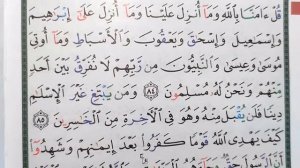 قُلْ ءَامَنَّا بِٱللَّهِ وَمَآ أُنزِلَ عَلَيْنَا وَمَآ أُنزِلَ عَلَىٰٓ إِبْرَٰهِيمَ
وَإِسْمَٰعِيلَ وَإِسْحَٰقَ وَيَعْقُوبَ وَٱلْأَسْبَاطِ وَمَآ أُوتِىَ
مُوسَىٰ وَعِيسَىٰ وَٱلنَّبِيُّونَ مِن رَّبِّهِمْ لَا نُفَرِّقُ بَيْنَ أَحَدٍ
مِّنْهُمْ وَنَحْنُ لَهُۥ مُسْلِمُونَ ٨٤ وَمَن يَبْتَغِ غَيْرَ ٱلْإِسْلَٰمِ
دِينًا فَلَن يُقْبَلَ مِنْهُ وَهُوَ فِى ٱلْءَاخِرَةِ مِنَ ٱلْخَٰسِرِينَ ٨٥
كَيْفَ يَهْدِى ٱللَّهُ قَوْمًا كَفَرُوا۟ بَعْدَ إِيمَٰنِهِمْ وَشَهِدُوٓا۟